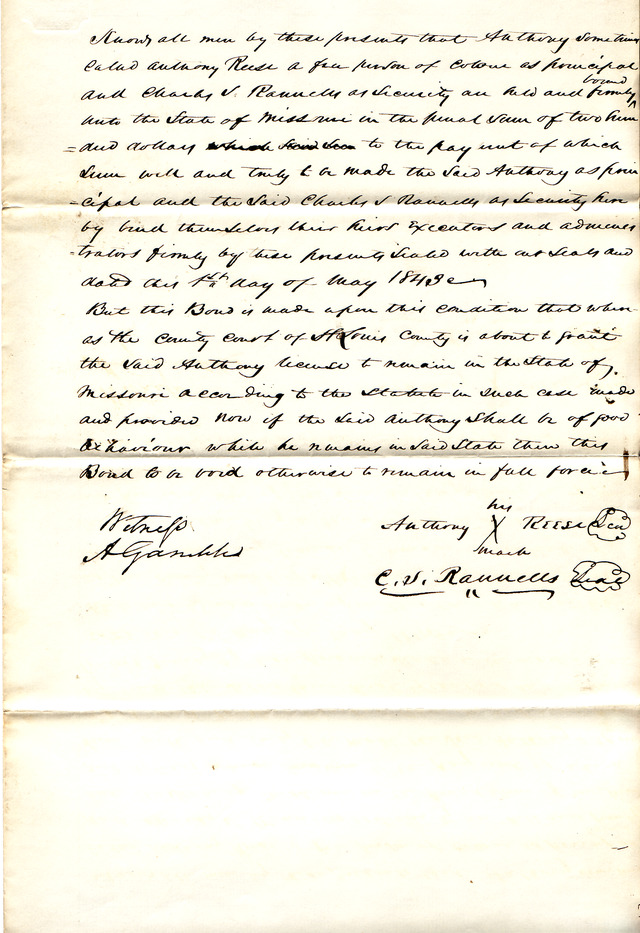 Know all men by these presents that Anthony sometim
Called Anthony Reese a free person of Colour as principal
and Charles S. Rannells as Security are held and firmly
bound
unto the State of Missouri in the penal Sum of two hun
=dred dollars to the payment of which
Sum well and truly to be made the Said Anthony as prin
=cipal and the Said Charles S Rannells as Security here
by bind themselves their heirs Executors and adminis
=trators firmly by these presents Sealed with our Seals and
dated this 1st day of May 1843
But this Bond is made upon this condition that where
as the County Court of St Louis County is about to grant
the Said Anthony license to remain in the State of
Missouri according to the Statute in Such case made
and provided Now if the Said Anthony Shall be of good
behaviour while he remains in Said State then this
Bond to be void otherwise to remain in full force
his
Witness Anthony X REESE Seal
mark
A Gamble
C. S. Rannells Seal